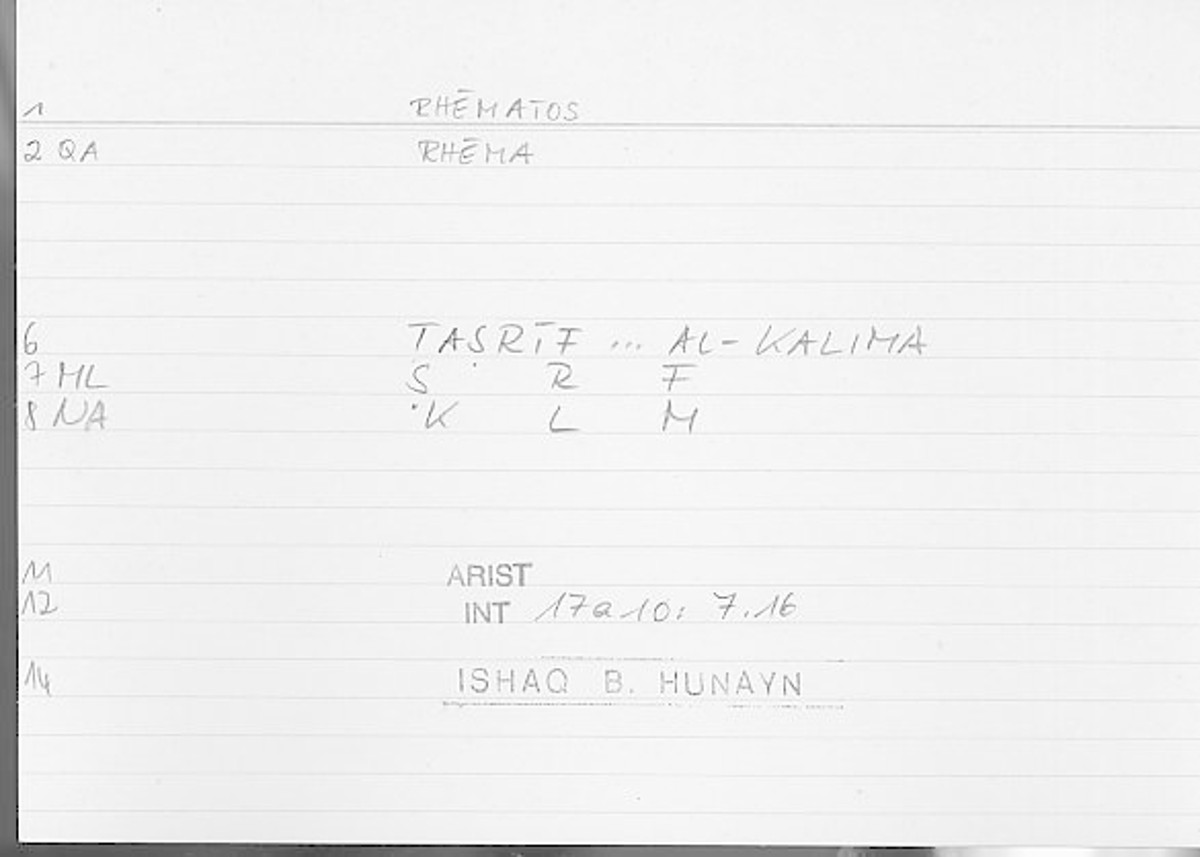 1 RHĒMATOS
2 QA RHĒMA
6 TAṢRĪF ... AL-KALIMA
7 ML Ṣ R F
8 NA K L M
11 ARIST
12 INT 17a10: 7.16
14 ISHAQ B. HUNAYN